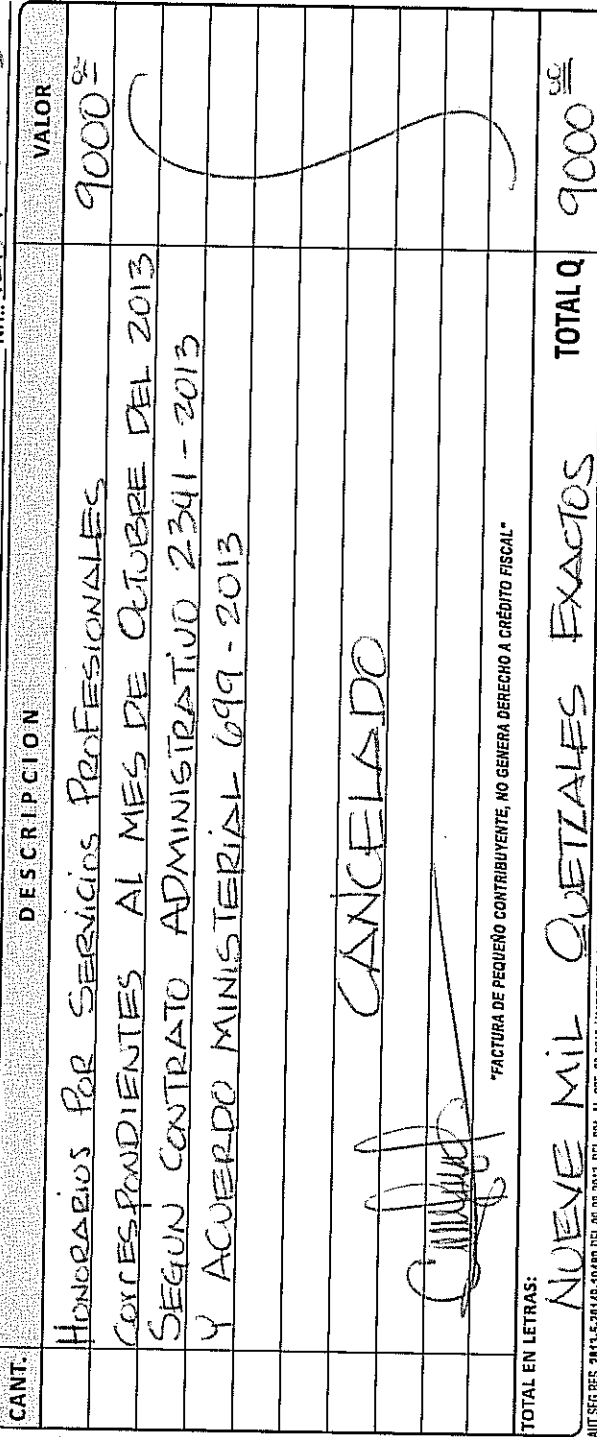 CANT. DESCRIPCION VALOR
HONORARIOS POR SERVICIOS PROFESIONALES 9000 00
CORRESPONDIENTES AL MES DE OCTUBRE DEL 2013
SEGÚN CONTRATO ADMINISTRATIVO 2341-2013
Y ACUERDO MINISTERIAL 699-2013
CANCELADO
"FACTURA DE PEQUEÑO CONTRIBUYENTE, NO GENERA DERECHO A CRÉDITO FISCAL"
TOTAL EN LETRAS: TOTAL Q 9000 00
NUEVE MIL QUETZALES EXACTOS